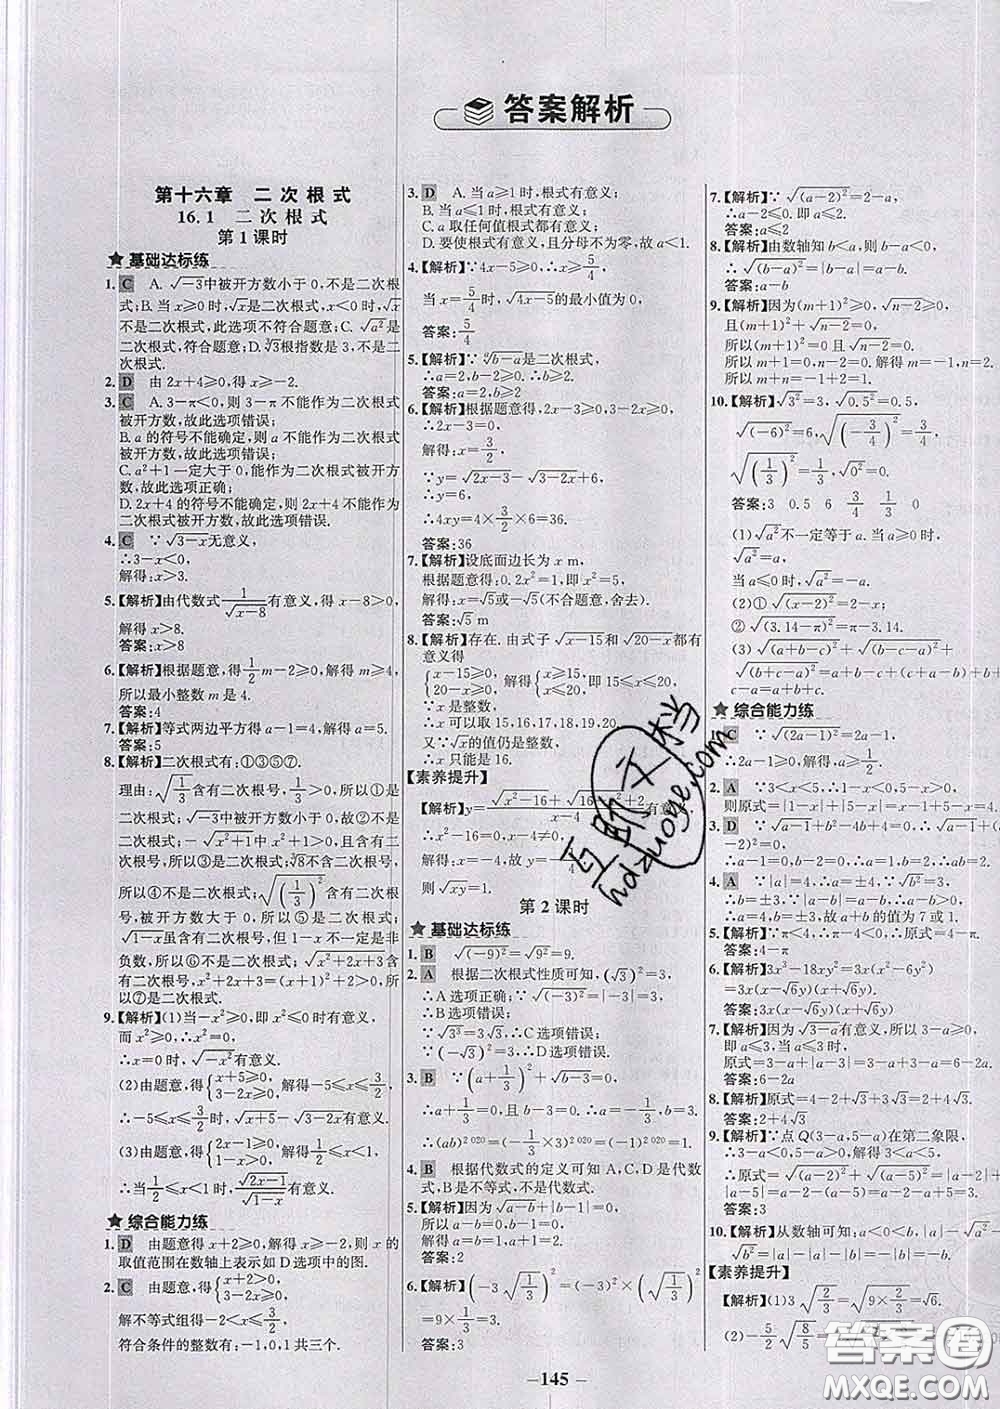 答案解析
第十六章 二次根式
16.1 二次根式
第1课时
★基础达标练
1. C A. √-3中被开方数小于0,不是二次根
式;B. 当x≥0时√x是二次根式,x<0时,√x
不是二次根式,此选项不符合题意;C. √a²是
二次根式,符合题意;D. ∛3根指数是3,不是二
次根式.
2. D 由2x+4≥0,得x≥-2.
3. C A.3-π<0,则3-π不能作为二次根式
被开方数,故此选项错误;
B. a的符号不能确定,则a不能作为二次根式
被开方数,故此选项错误;
C. a²+1一定大于0,能作为二次根式被开方
数,故此选项正确;
D. 2x+4的符号不能确定,则2x+4不能作为
二次根式被开方数,故此选项错误.
4. C ∵√3-x无意义,
∴3-x<0,
解得:x>3.
5.【解析】由代数式1/√x-8有意义,得x-8>0,
解得x>8.
答案:x>8
6.【解析】根据题意,得1/2m-2≥0,解得m≥4,
所以最小整数m是4.
答案:4
7.【解析】等式两边平方得a-1=4,解得a=5.
答案:5
8.【解析】二次根式有:①③⑤⑦.
理由:√1/3含有二次根号,1/3>0,所以①是
二次根式;√-3中被开方数小于0,故②不是
二次根式;-√x²+1中x²+1>0,且含有二次
根号,所以③是二次根式;∛8不含有二次根号,
所以④不是二次根式;√(1/3)²含有二次根号,
被开方数大于0,所以⑤是二次根式;
√1-x虽含有二次根号,但1-x不一定是非
负数,所以⑥不是二次根式.√x²+2x+3含有
二次根号,x²+2x+3=(x+1)²+2>0,
所以⑦是二次根式.
9.【解析】(1)当-x²≥0,即x²≤0时有意义,
而x²≥0,∴x=0,
∴x=0时,√-x²有意义.
(2)由题意,得{x+5≥0, 3-2x≥0,解得-5≤x≤3/2,
∴-5≤x≤3/2时,√x+5-√3-2x有意义.
(3)由题意,得{2x-1≥0, 1-x>0,解得1/2≤x<1,
∴当1/2≤x<1时,√2x-1/√1-x有意义.
★综合能力练
1. D 由题意得x+2≥0,解得x≥-2,则x的
取值范围在数轴上表示如D选项中的图.
2. C 由题意,得{x+2>0, 3-2x≥0,
解不等式组得-2<x≤3/2,
符合条件的整数有:-1,0,1共三个.
3. D A. 当a≥1时,根式有意义;
B. 当a≤1时,根式有意义;
C. a取任何值根式都有意义;
D. 要使根式有意义,且分母不为零,故a<1.
4.【解析】∵4x-5≥0,∴x≥5/4,
当x=5/4时,√4x-5的最小值为0.
答案:5/4
5.【解析】∵ᵃ√b-a是二次根式,
∴a=2,b-2≥0.∴b≥2.
答案:a=2,b≥2
6.【解析】根据题意得,2x-3≥0,3-2x≥0,
∴2x-3=0,
解得:x=3/2.
∵y=√2x-3+√3-2x+6,
∴y=6,
∴4xy=4×3/2×6=36.
答案:36
7.【解析】设底面边长为x m,
根据题意得:0.2x²=1,即x²=5,
解得:x=√5或-√5(不合题意,舍去).
答案:√5 m
8.【解析】存在.由式子√x-15和√20-x都有
意义得
{x-15≥0, 20-x≥0.解得{x≥15, x≤20,即15≤x≤20,
∵x是整数,
∴x可以取15,16,17,18,19,20.
又∵√x的值仍是整数,
∴x只能是16.
【素养提升】
【解析】y=
∴x²-16=0,x-4≠0,
解得:x=-4,故
则√xy=1.
第2课时
★基础达标练
1. B √(-9)²=√9²=9.
2. A 根据二次根式性质可知,(√3)²=3,
∴A选项正确;∵√(-3)²=|-3|=3,
∴B选项错误;
∵√3³=3√3,∴C选项错误;
∵(-√3)²=3,∴D选项错误.
3. B ∵(a+1/3)²+√b-3=0,
∴a+1/3=0,且b-3=0.∴a=-1/3,b=3.
∴(ab)²⁰²⁰=(-1/3×3)²⁰²⁰=(-1)²⁰²⁰=1.
4. B 根据代数式的定义可知A,C,D是代数
式,B是不等式,不是代数式.
5.【解析】因为√a-b+|b-1|=0,
所以a-b=0,b-1=0.
所以b=1,a=1.
所以a+1=2.
答案:2
6.【解析】(-3√1/3)²=(-3)²×(√1/3)²=9×
1/3=3.
答案:3
7.【解析】∵√(a-2)²=2-a,
∴a-2≤0.即a≤2.
答案:a≤2
8.【解析】由数轴知b<a,则b-a<0,
∴√(b-a)²=|b-a|=a-b.
答案:a-b
9.【解析】因为(m+1)²≥0,√n-2≥0,
且(m+1)²+√n-2=0,
所以(m+1)²=0,√n-2=0.
所以m+1=0,n-2=0.解得m=-1,n=2.
所以m+n=-1+2=1.
10.【解析】√3²=3,√0.5²=0.5,
√(-6)²=6,√(-3/4)²=3/4,
√(1/3)²=1/3,√0²=0.
答案:3 0.5 6 3/4 1/3 0
(1)√a²不一定等于a.当a≥0时,
√a²=a,
当a≤0时,√a²=-a.
(2)①√(x-2)²=2-x.
②√(3.14-π)²=π-3.14.
(3)√(a+b-c)²+√(b-c-a)²+
√(b+c-a)²=a+b-c+a+c-b+
b+c-a=a+b+c.
★综合能力练
C ∵√(2a-1)²=2a-1,
∴2a-1≥0,∴a≥1/2.
2. A ∵3<x<5,
则原式=|1-x|+|5-x|=x-1+5-x=4.
3. D
∴a-1=0,b-2=0,∴a=1,b=2,
4. A
∴a=4,b=±3,故a+b的值为7或1.
5.【解析】∵π<4,∴π-4<0,∴
答案:4-π
6.【解析】3x³-18xy²=3x(x²-6y²)
=3x(x-√6y)(x+√6y).
答案:3x(x-√6y)(x+√6y)
7.【解析】因为√3-a有意义,所以3-a≥0,
即a≤3,当a≤3时,
原式=3-a+|a-3|=3-a+3-a=6-2a.
答案:6-2a
8.【解析】原式=4-2+√3+3√3=2+4√3.
答案:2+4√3
9.【解析】∵点Q(3-a,5-a)在第二象限,
∴3-a<0,5-a>0,解得3<a<5,
答案:3
10.【解析】从数轴可知,a<0<b,
【素养提升】
【解析】(1)3√2/3=√9×2/3=√6.
(2)-5/2√8/5
-145-
互助文档
hdzuoye.com
答案圈
MXQE.COM